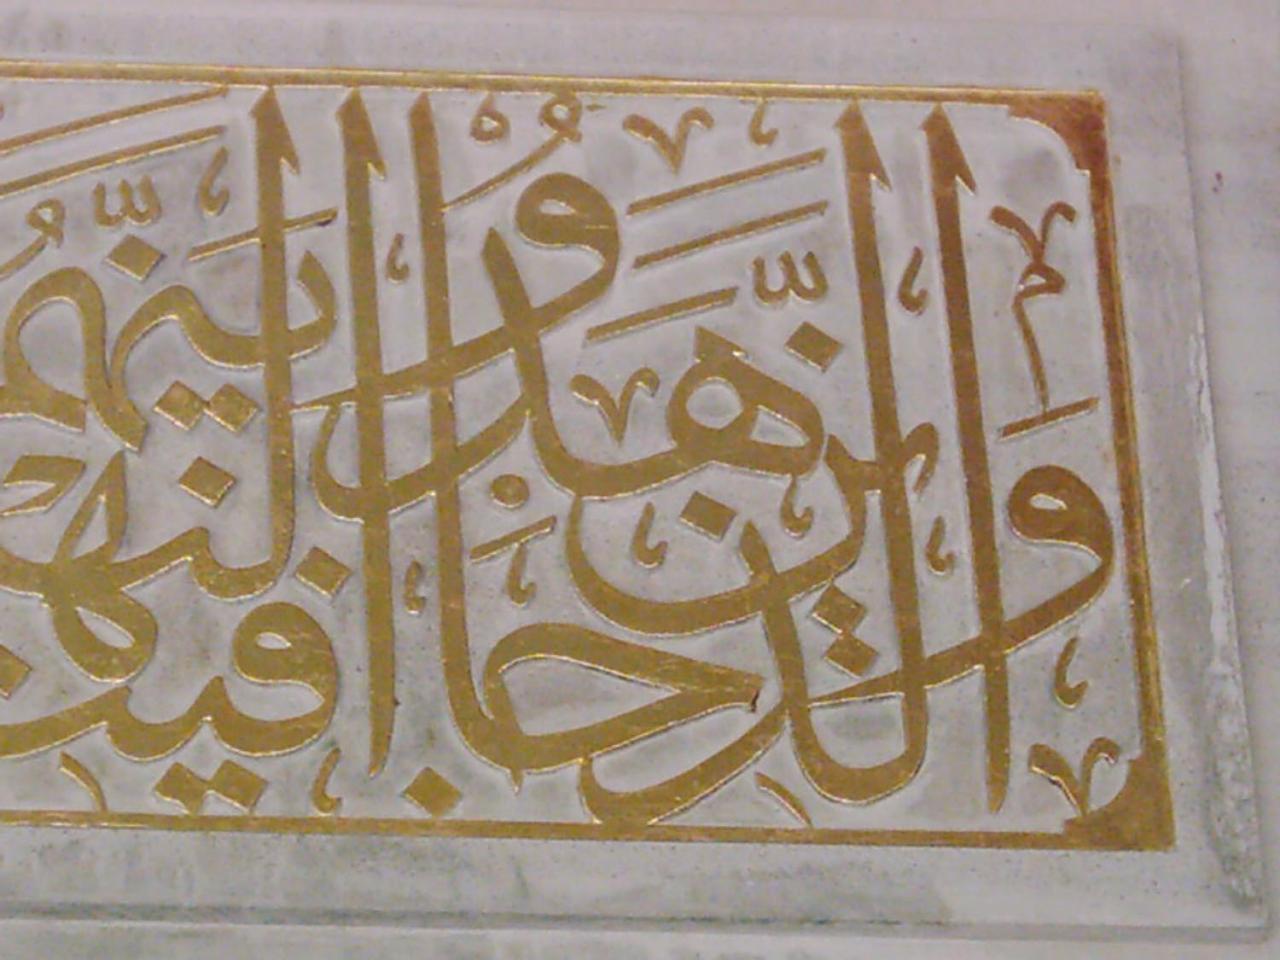 وَالَّذِينَ جَاهَدُوا فِينَا لَنَهْدِيَنَّهُمْ